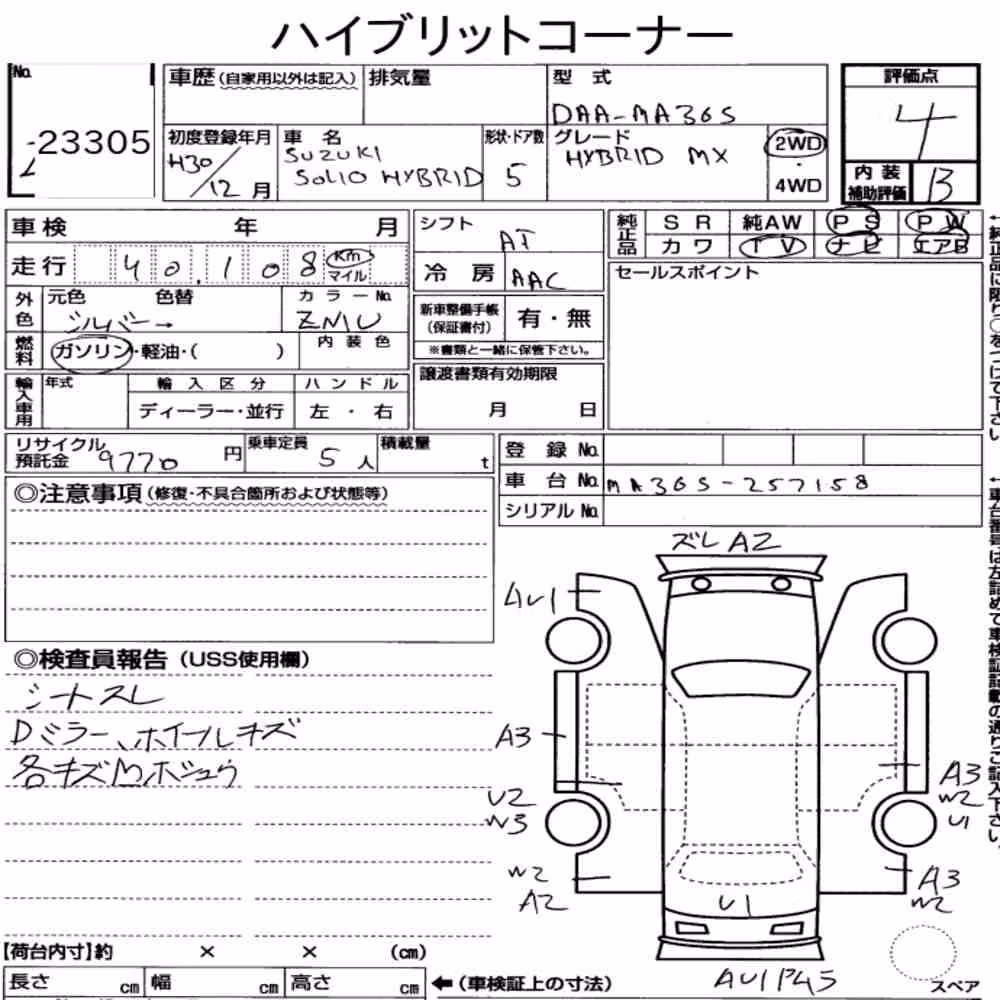 ハイブリットコーナー
No.
23305
車歴(自家用以外は記入)
排気量
型 式
DAA-MA36S
初度登録年月
H30/12月
車 名
SUZUKI
SOLIO HYBRID
形状・ドア数
5
グレード
HYBRID MX
2WD
・
4WD
評価点
4
内装
補助評価
B
車検 年 月
走行 40,108 Km
マイル
外色
元色 色替
シルバー→
カラーNo.
ZMU
燃料
ガソリン・軽油・( )
内装色
輸入車用
年式
輸入区分
ディーラー・並行
ハンドル
左・右
シフト
AT
冷房 AAC
新車整備手帳
(保証書付)
有・無
※書類と一緒に保管下さい。
譲渡書類有効期限
月 日
純正品
SR 純AW PS PW
カワ TV ナビ エアB
セールスポイント
←純正品に限り○をつけて下さい
リサイクル
預託金 9770円
乗車定員
5人
積載量
t
登録No.
車台No. MA36S-257158
シリアルNo.
←車台番号は左詰めで車検証記載の通りご記入下さい。
◎注意事項(修復・不具合箇所および状態等)
◎検査員報告(USS使用欄)
シートスレ
Dミラー、ホイールキズ
各キズ凹ホシュウ
ズレ A2
AU1
A3
U2
W3
W2
A2
A3
W2
U1
A3
W2
U1
AU1P45
スペア
【荷台内寸】約 × × (cm)
長さ cm 幅 cm 高さ cm
←(車検証上の寸法)